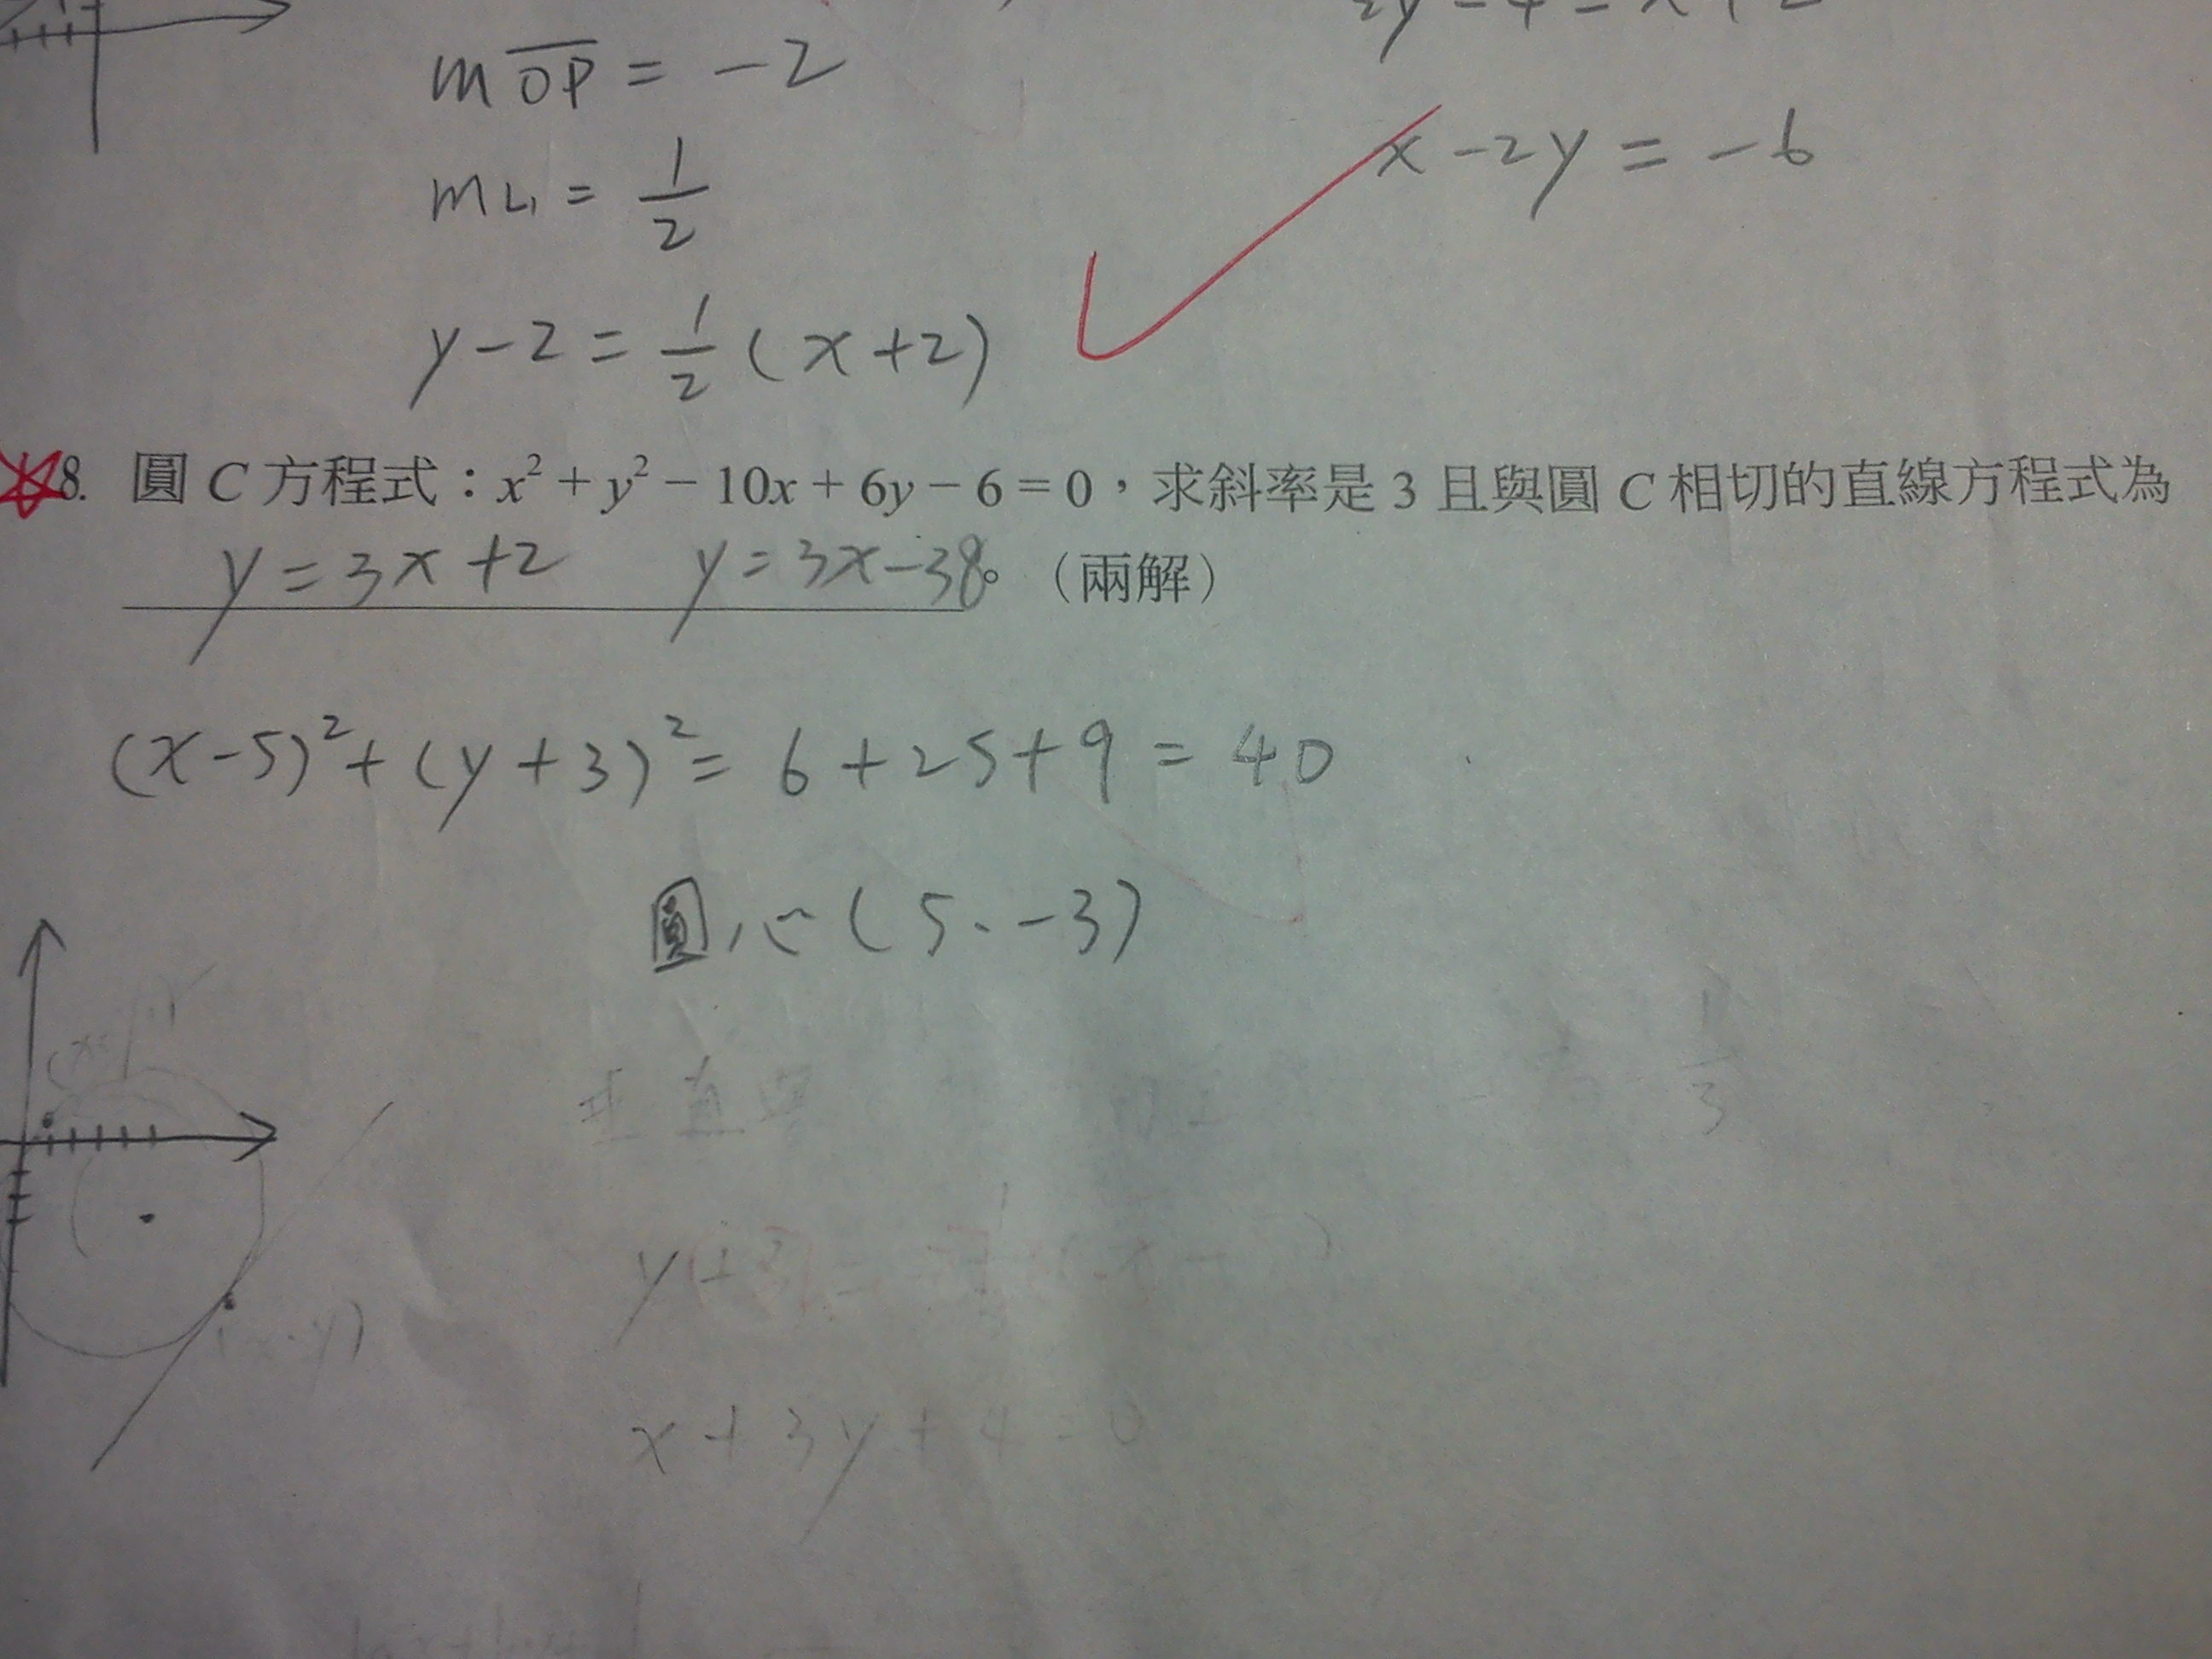 m OP = -2
x - 2y = -6
mL₁ = 1/2
y - 2 = 1/2 (x + 2)
8. 圓 C 方程式：x² + y² − 10x + 6y − 6 = 0，求斜率是 3 且與圓 C 相切的直線方程式為
y = 3x + 2 y = 3x - 38。（兩解）
(x - 5)² + (y + 3)² = 6 + 25 + 9 = 40
圓心 (5、-3)
1/3
垂直
(x、y)
x + 3y + 4 = 0